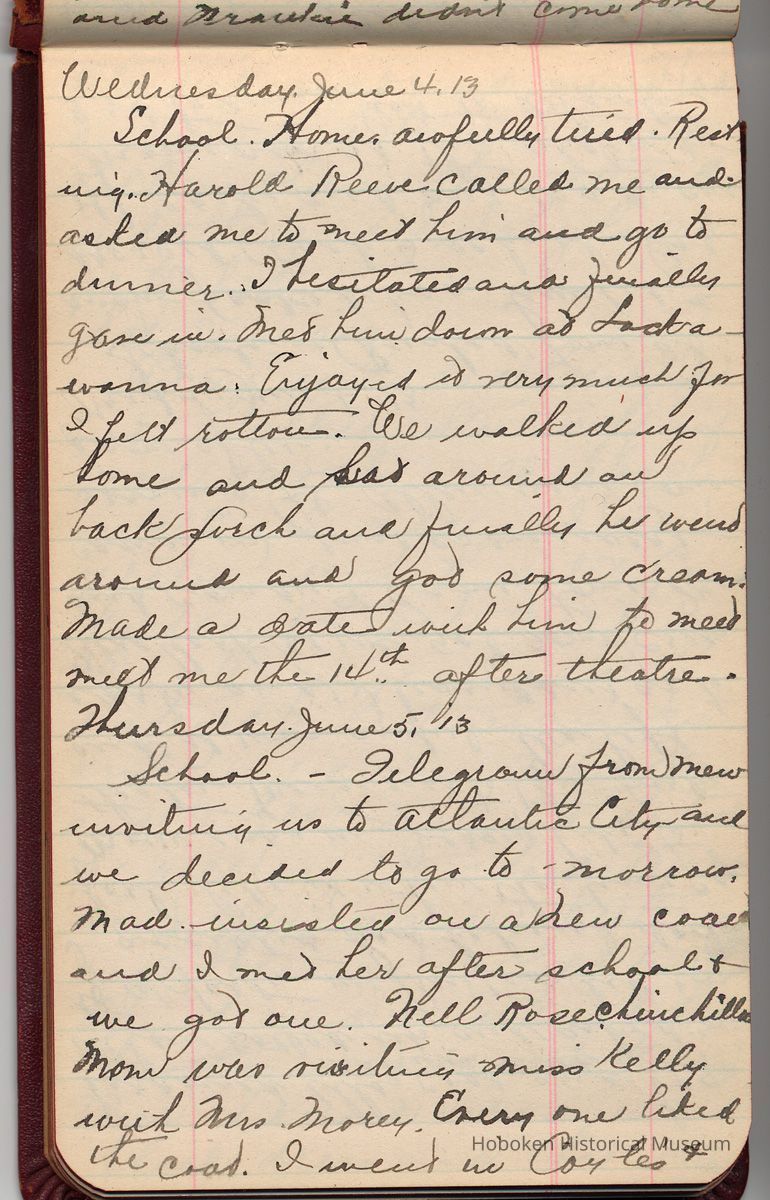 and Frankie didn't come home
Wednesday. June 4. 13
School. Home. awfully tired. Rest
ing. Harold Reeve called me and
asked me to meet him and go to
dinner. I hesitated and finally
gave in. Met him down at Lacka-
wanna. Enjoyed it very much for
I felt rotton. We walked up
home and sat around on
back porch and finally he went
around and got some cream.
Made a date with him to meet
meet me the 14th after theatre.
Thursday. June 5, '13
School. - Telegram from
inviting us to Atlantic City and
we decided to go to-morrow.
Mad. insisted on a new coat
and I met her after school +
we got one. Nell Rose chinchilla
Mom was visiting Miss Kelly
with Mrs. Morey. Every one liked
the coat. I went in +
Hoboken Historical Museum